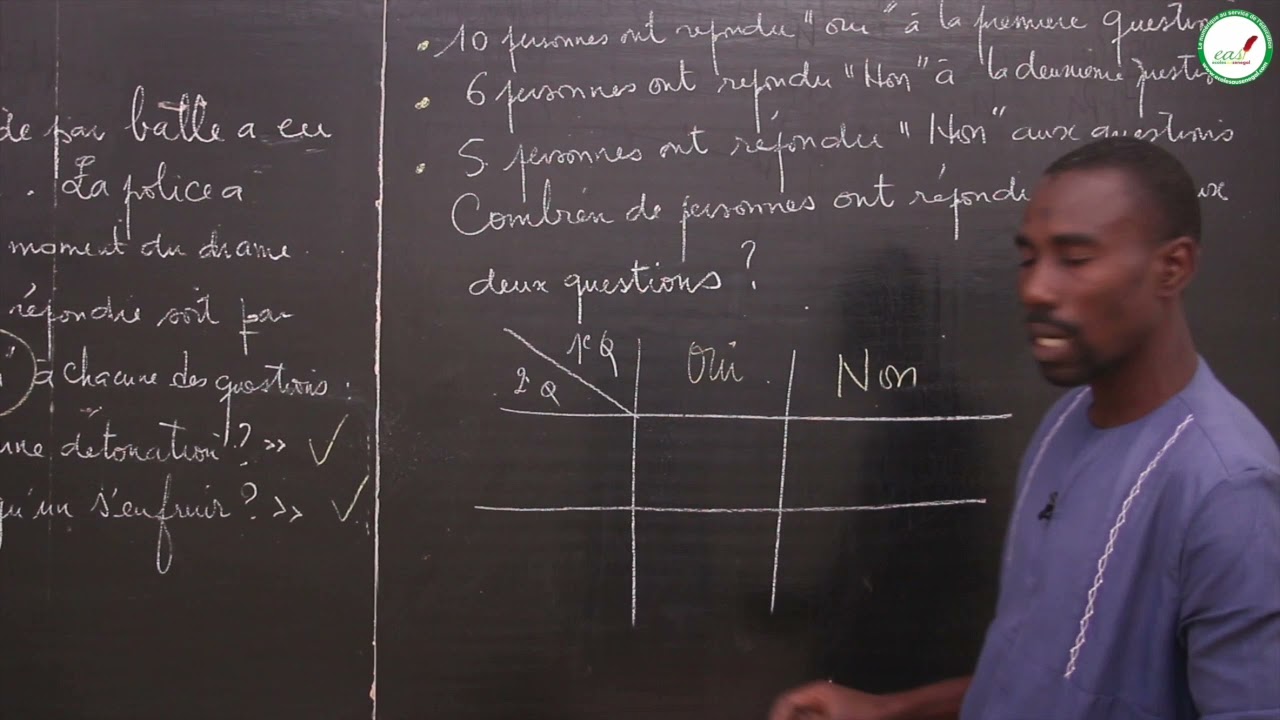 dé par balle a eu
. La police a
moment du drame
répondre soit par
à chacune des questions.
une détonation ? >>
qu'un s'enfuir ? >>
• 10 personnes ont repondu "oui" à la premiere question
• 6 personnes ont repondu "Non" à la deuxieme questio
• 5. personnes ont répondu "Non" aux questions
Combien de personnes ont répond ux
deux questions ?
1e Q Oui Non
2e Q
eas
ecolesausenegal
www.ecolesausenegal.com